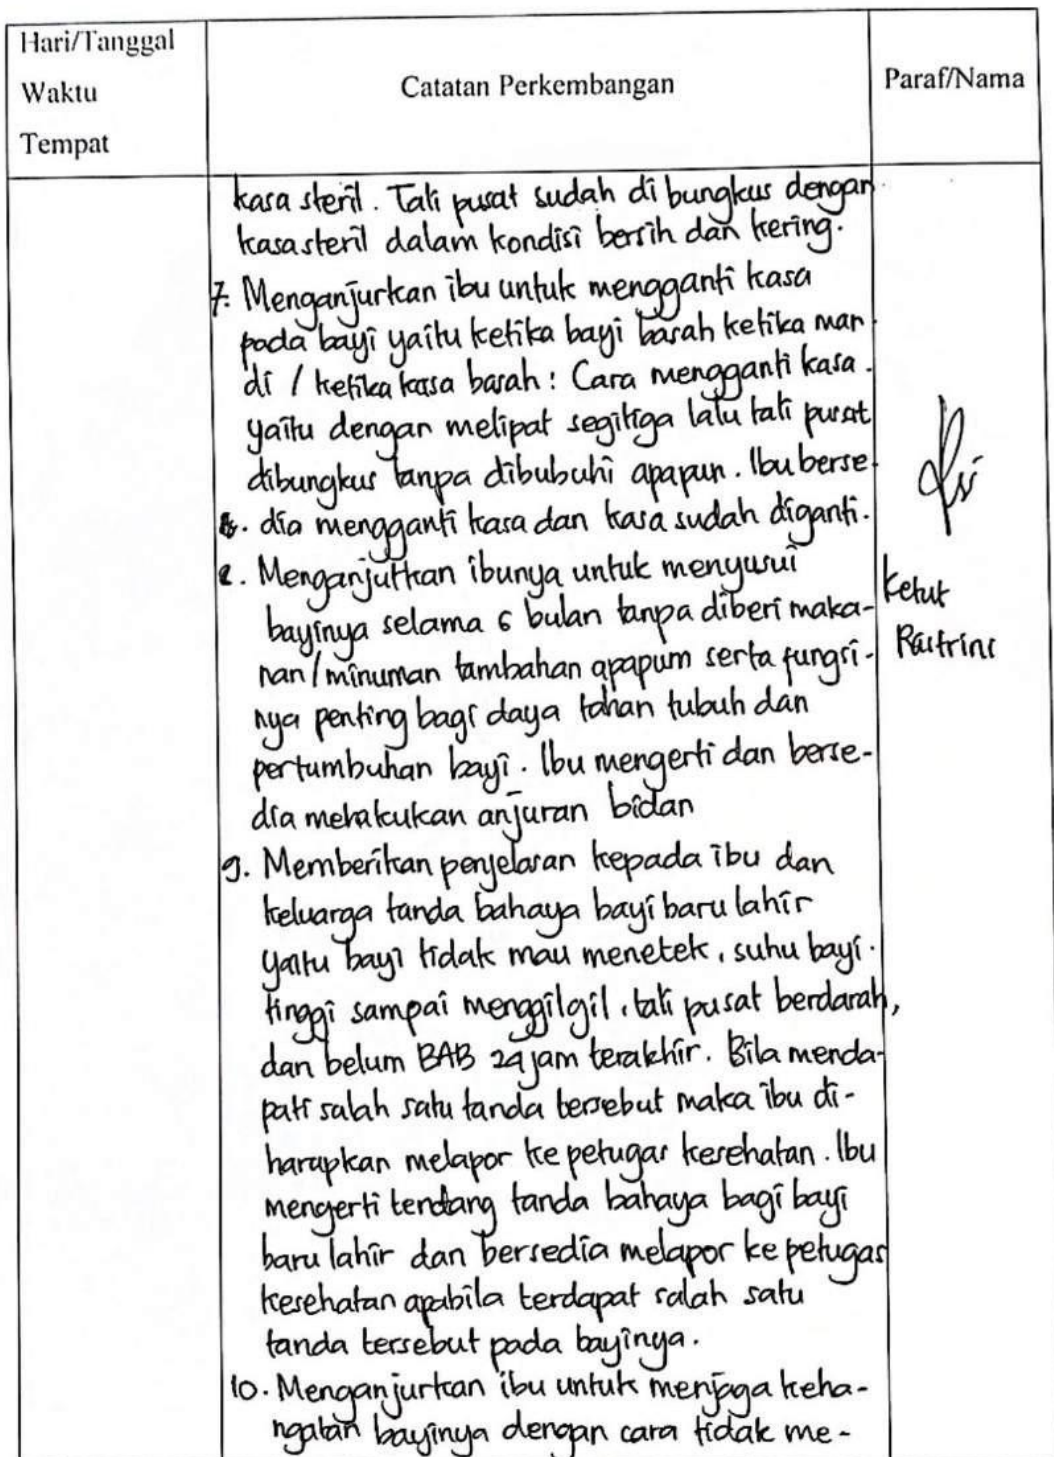 Hari/Tanggal
Waktu
Tempat
Catatan Perkembangan
Paraf/Nama
kasa steril. Tali pusat sudah di bungkus dengan
kasa steril dalam kondisi bersih dan kering.
7. Menganjurkan ibu untuk mengganti kasa
pada bayi yaitu ketika bayi basah ketika man
di / ketika kasa basah! Cara mengganti kasa.
yaitu dengan melipat segitiga lalu tali pusat
dibungkus tanpa dibubuhi apapun. Ibu berse
dia mengganti kasa dan kasa sudah diganti.
8. Menganjutkan ibunya untuk menyusui
bayinya selama 6 bulan tanpa diberi maka-
nan/minuman tambahan apapum serta fungsi-
nya penting bagi daya tahan tubuh dan
pertumbuhan bayi. Ibu mengerti dan berse-
dia melakukan anjuran bidan
9. Memberikan penjelasan kepada ibu dan
keluarga tanda bahaya bayi baru lahir
yaitu bayi tidak mau menetek, suhu bayi.
tinggi sampai menggilgil, tali pusat berdarah,
dan belum BAB 24 jam terakhir. Bila menda-
pati salah satu tanda tersebut maka ibu di-
harapkan melapor ke petugas kesehatan. Ibu
mengerti tendang tanda bahaya bagi bayi
baru lahir dan bersedia melapor ke petugas
kesehatan apabila terdapat salah satu
tanda tersebut pada bayinya.
10. Menganjurkan ibu untuk menjaga keha-
ngatan bayinya dengan cara tidak me-
Ketut